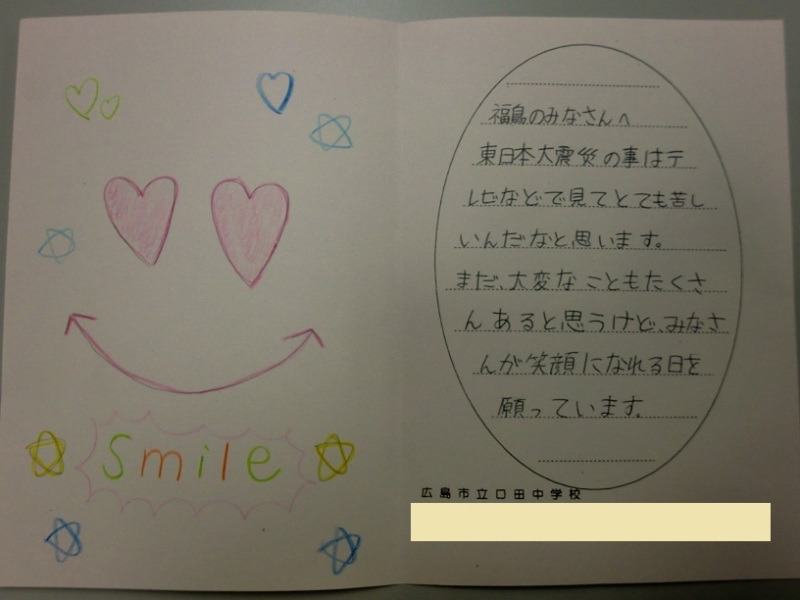 Smile
福島のみなさんへ
東日本大震災の事はテ
レビなどで見てとても苦し
いんだなと思います。
まだ、大変なこともたくさ
んあると思うけど、みなさ
んが笑顔になれる日を
願っています。
広島市立口田中学校